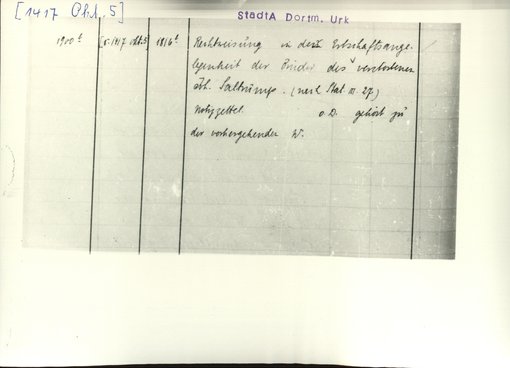 [1417 Okt. 5]
StadtA Dortm. Urk
1900 t [v. 1417 Okt. 5] 1816 t Rechtweisung in der Erbschaftsange-
legenheit der Brüder des verstorbenen
Joh. Saltrump. (nach Stat III. 27)
Notizzettel. o. D. gehört zu
der vorhergehenden U.